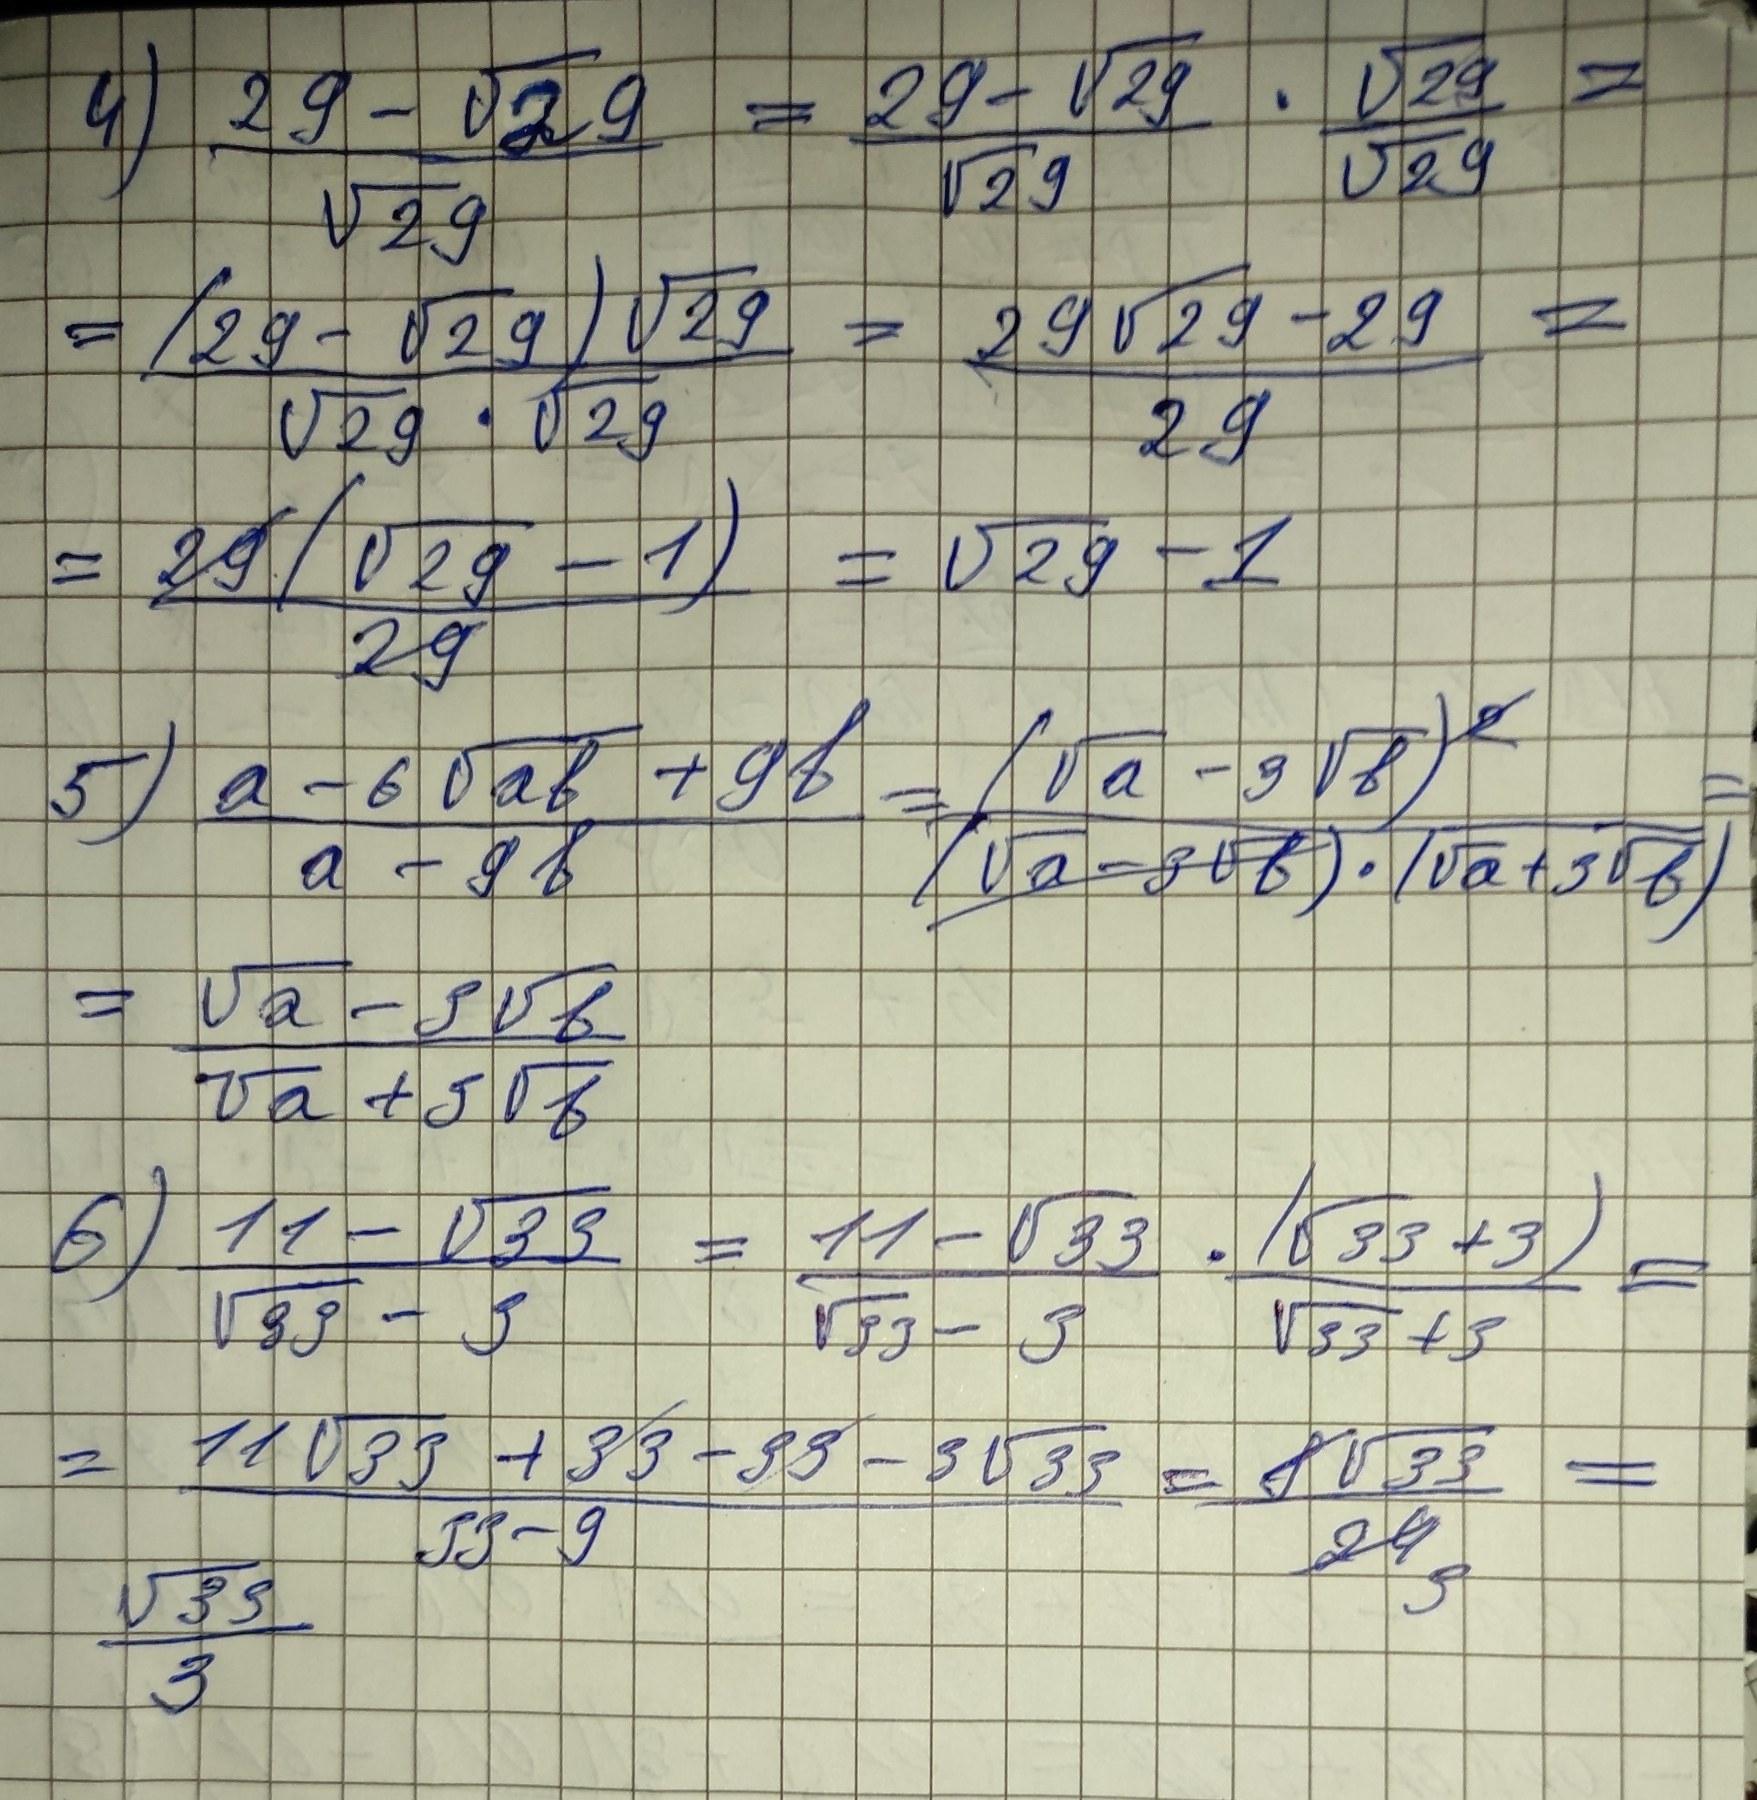 4) (29 - √29)/√29 = (29 - √29)/√29 · √29/√29 =
= ((29 - √29)√29)/(√29 · √29) = (29√29 - 29)/29 =
= (29(√29 - 1))/29 = √29 - 1
5) (a - 6√ab + 9b)/(a - 9b) = (√a - 3√b)²/((√a - 3√b)·(√a + 3√b)) =
= (√a - 3√b)/(√a + 3√b)
6) (11 - √33)/(√33 - 3) = (11 - √33)/(√33 - 3) · (√33 + 3)/(√33 + 3) =
= (11√33 + 33 - 33 - 3√33)/(33 - 9) = 8√33/24 3 =
√33/3